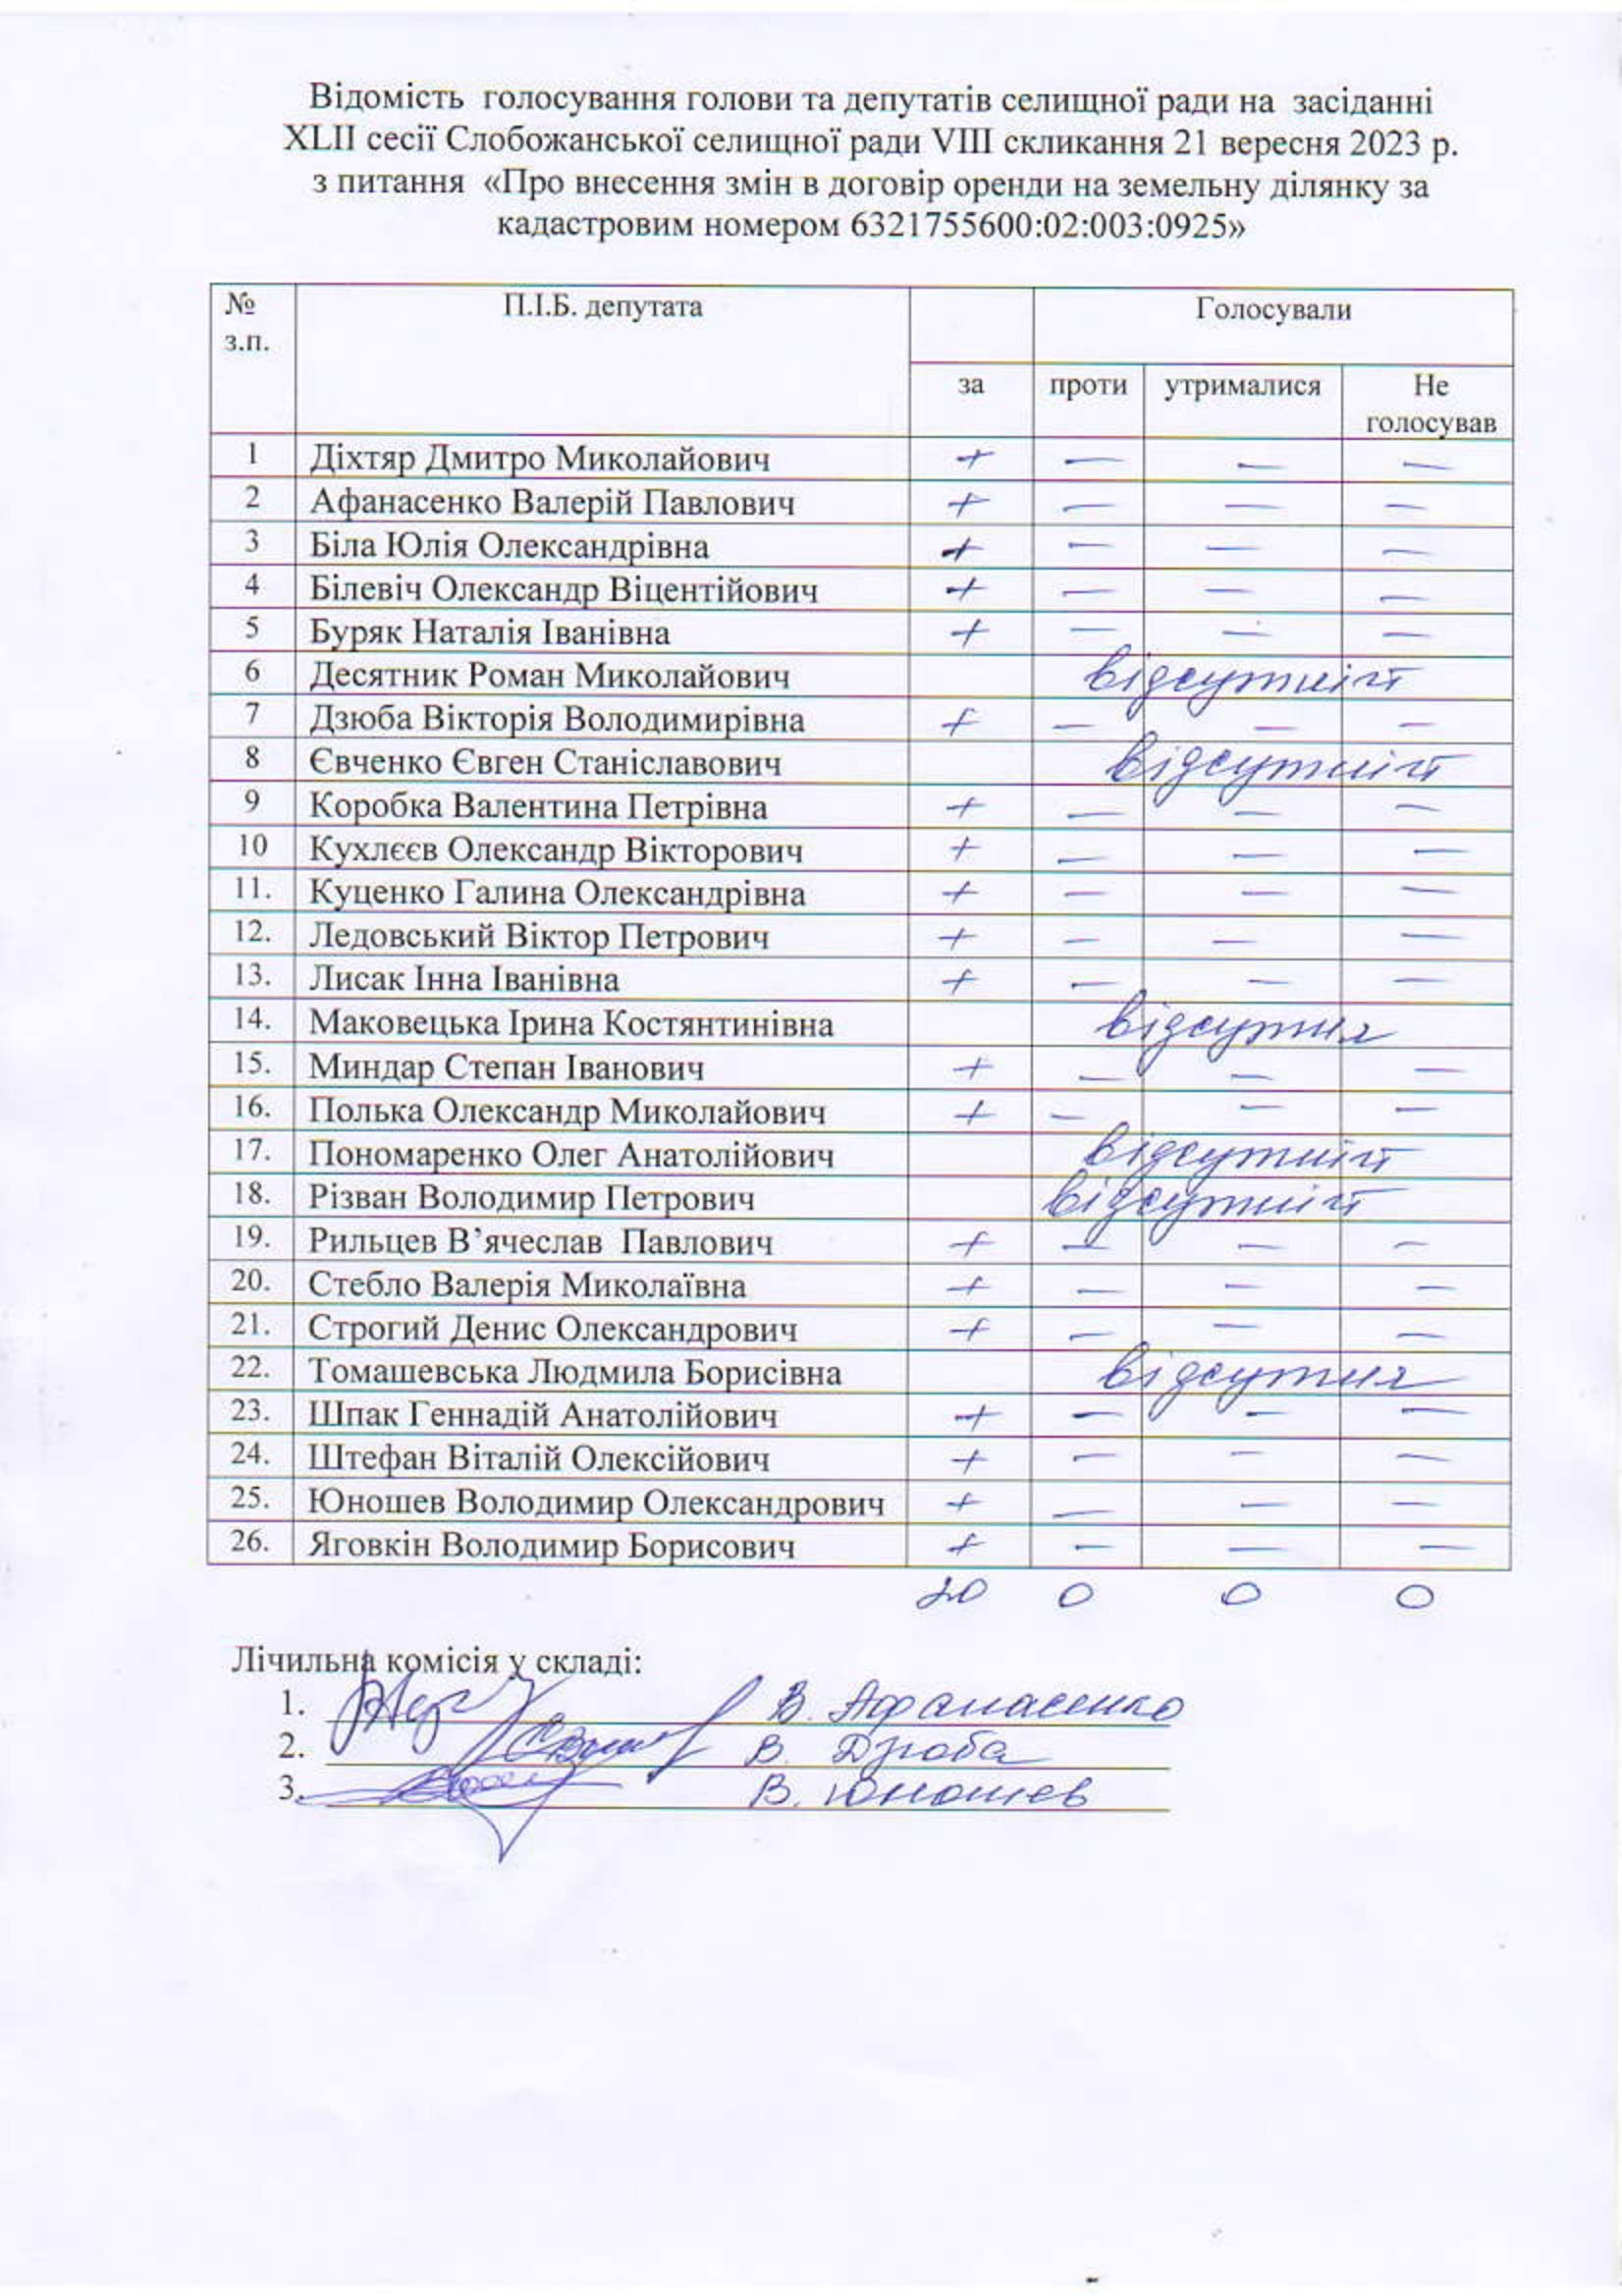 Відомість голосування голови та депутатів селищної ради на засіданні
XLII сесії Слобожанської селищної ради VIII скликання 21 вересня 2023 р.
з питання «Про внесення змін в договір оренди на земельну ділянку за
кадастровим номером 6321755600:02:003:0925»
№ з.п. П.І.Б. депутата Голосували
за проти утрималися Не голосував
1 Діхтяр Дмитро Миколайович + — — —
2 Афанасенко Валерій Павлович + — — —
3 Біла Юлія Олександрівна + — — —
4 Білевіч Олександр Віцентійович + — — —
5 Буряк Наталія Іванівна + — — —
6 Десятник Роман Миколайович відсутній
7 Дзюба Вікторія Володимирівна + — — —
8 Євченко Євген Станіславович відсутній
9 Коробка Валентина Петрівна + — — —
10 Кухлєєв Олександр Вікторович + — — —
11. Куценко Галина Олександрівна + — — —
12. Ледовський Віктор Петрович + — — —
13. Лисак Інна Іванівна + — — —
14. Маковецька Ірина Костянтинівна відсутня
15. Миндар Степан Іванович + — — —
16. Полька Олександр Миколайович + — — —
17. Пономаренко Олег Анатолійович відсутній
18. Різван Володимир Петрович відсутній
19. Рильцев В’ячеслав Павлович + — — —
20. Стебло Валерія Миколаївна + — — —
21. Строгий Денис Олександрович + — — —
22. Томашевська Людмила Борисівна відсутня
23. Шпак Геннадій Анатолійович + — — —
24. Штефан Віталій Олексійович + — — —
25. Юношев Володимир Олександрович + — — —
26. Яговкін Володимир Борисович + — — —
20 0 0 0
Лічильна комісія у складі:
1. В. Афанасенко
2. В. Дзюба
3. В. Юношев